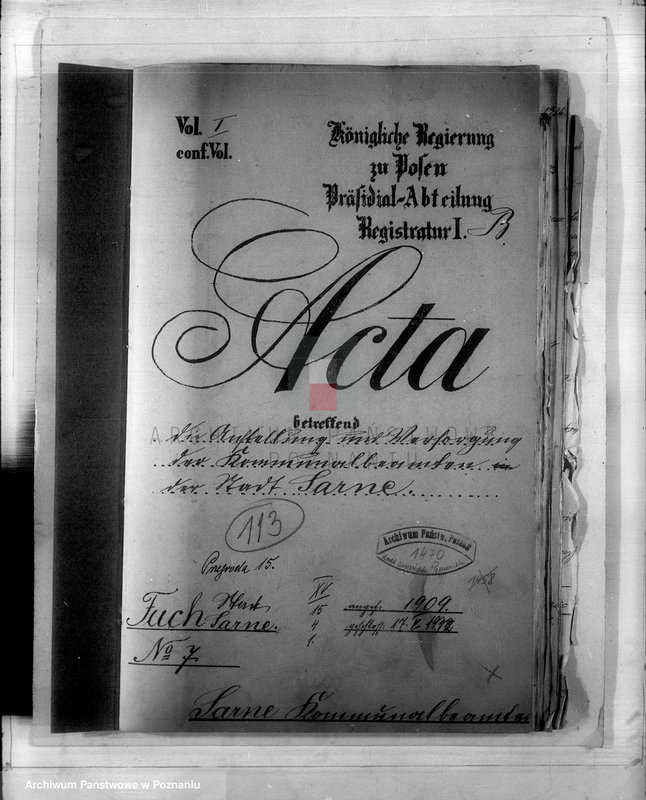 Vol. I
conf. Vol.
Königliche Regierung
zu Posen
Präsidial-Abteilung
Registratur I. B
Acta
betreffend
ARCHIWUM PAŃSTWOWE
W POZNANIU
die Anstellung und Versorgung
der Kommunalbeamten in
der Stadt Sarne.
113
Archiwum Państw. Poznań
1470
1458
Przegroda 15.
Fach Stadt Sarne.
No 7
XV
15
4
1.
angef. 1909.
geschloss. 17. X.
Sarne Kommunalbeamten
Archiwum Państwowe w Poznaniu